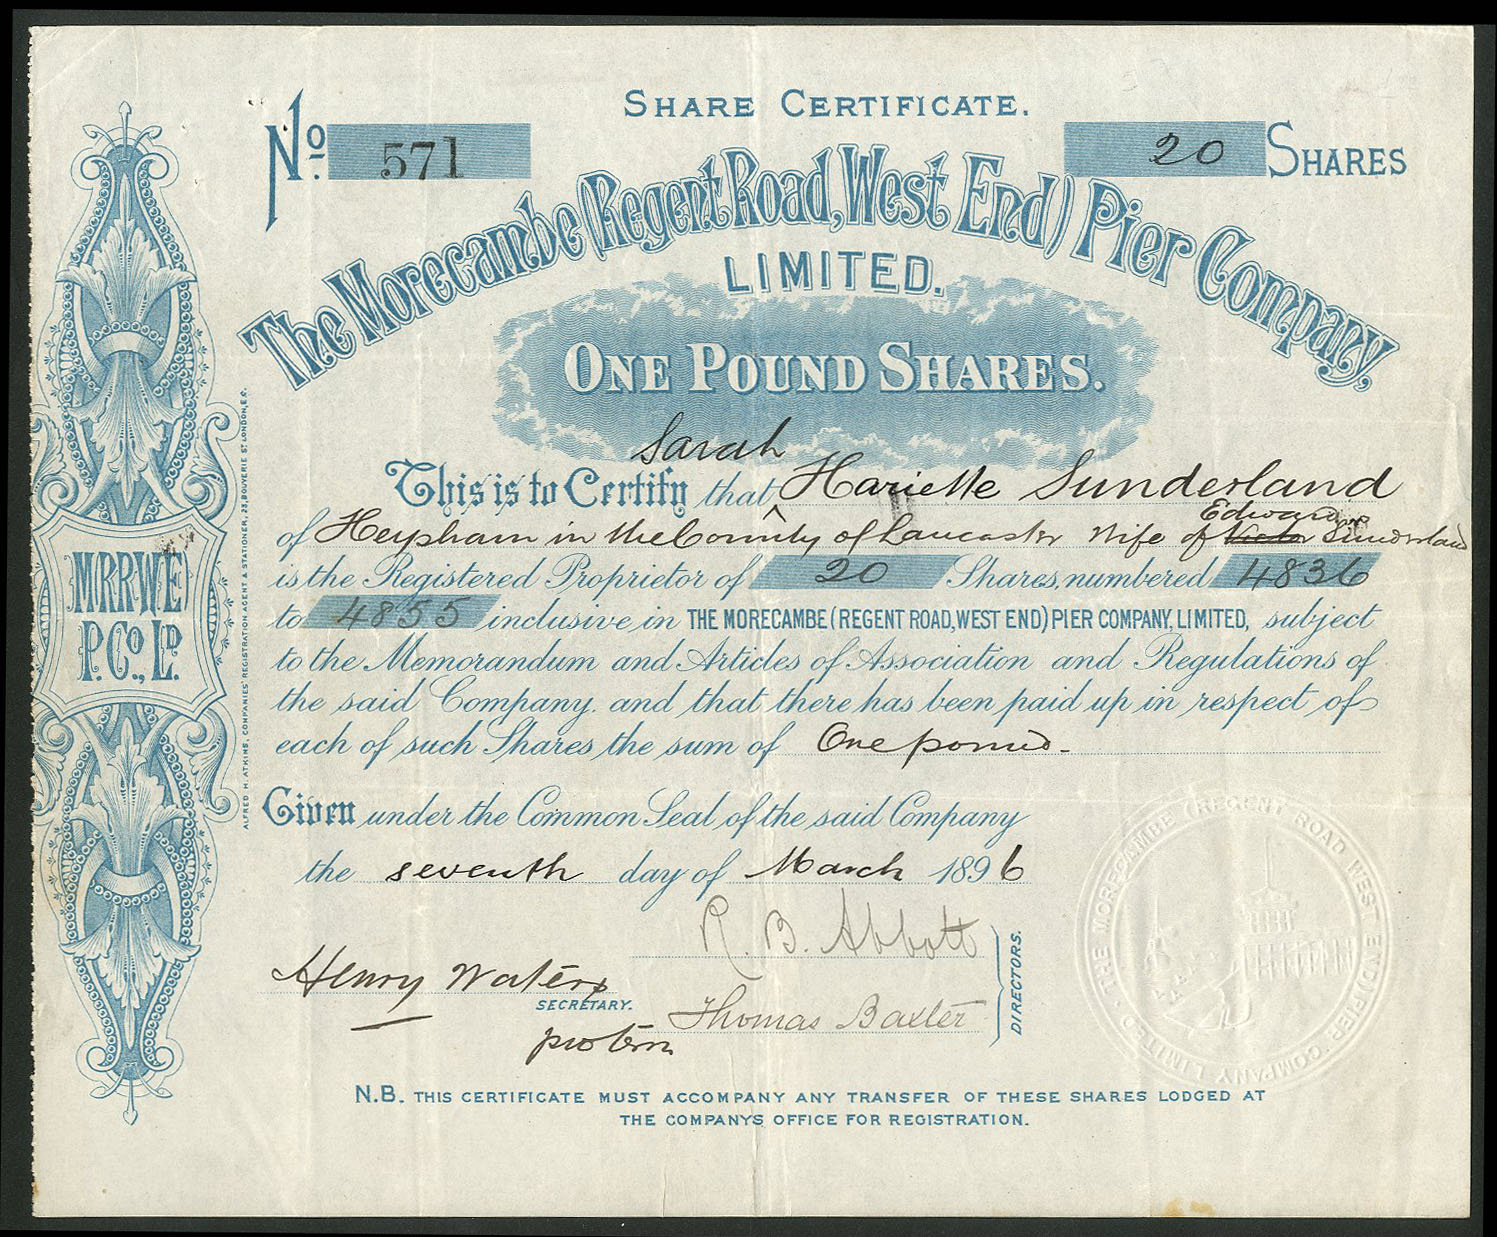 SHARE CERTIFICATE.
No. 571
20 SHARES
The Morecambe (Regent Road, West End) Pier Company,
LIMITED.
ONE POUND SHARES.
Sarah
This is to Certify that ^ Harielle Sunderland
Edward
of Heysham in the County of Lancaster Wife of Victor Sunderland
is the Registered Proprietor of 20 Shares, numbered 4836
to 4855 inclusive in THE MORECAMBE (REGENT ROAD, WEST END) PIER COMPANY, LIMITED, subject
to the Memorandum and Articles of Association and Regulations of
the said Company. and that there has been paid up in respect of
each of such Shares the sum of One pound.
Given under the Common Seal of the said Company
the seventh day of March 1896
R. B. Abbott
Henry Waters
SECRETARY.
pro tem
Thomas Baxter
DIRECTORS.
N.B. THIS CERTIFICATE MUST ACCOMPANY ANY TRANSFER OF THESE SHARES LODGED AT
THE COMPANYS OFFICE FOR REGISTRATION.
MRRWE
P. Co., Ld.
ALFRED H. ATKINS, COMPANIES' REGISTRATION AGENT & STATIONER, 23, BOUVERIE ST. LONDON, E.C.
THE MORECAMBE (REGENT ROAD WEST END) PIER COMPANY LIMITED